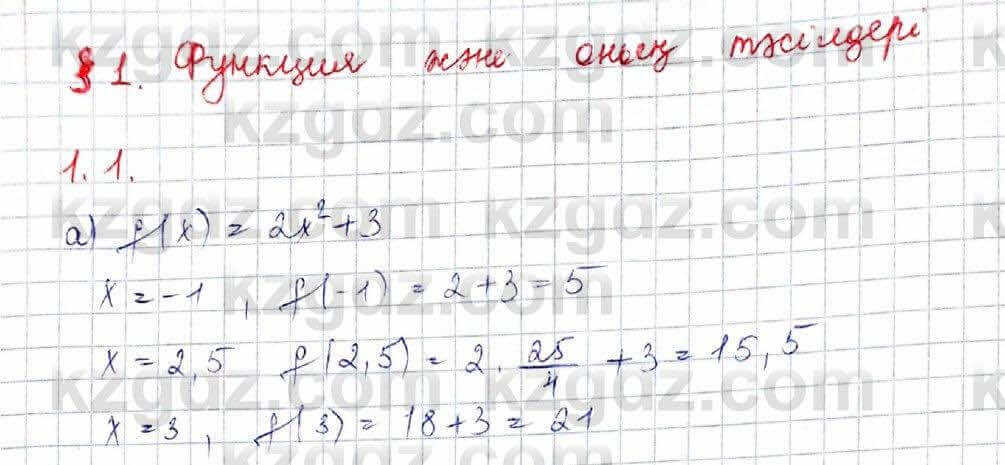 § 1. Функция және оның тәсілдері
1.1.
а) f(x) = 2x²+3
x = -1 , f(-1) = 2+3 = 5
x = 2,5 f(2,5) = 2 · 25/4 + 3 = 15,5
x = 3 , f(3) = 18+3 = 21
kzgdz.com